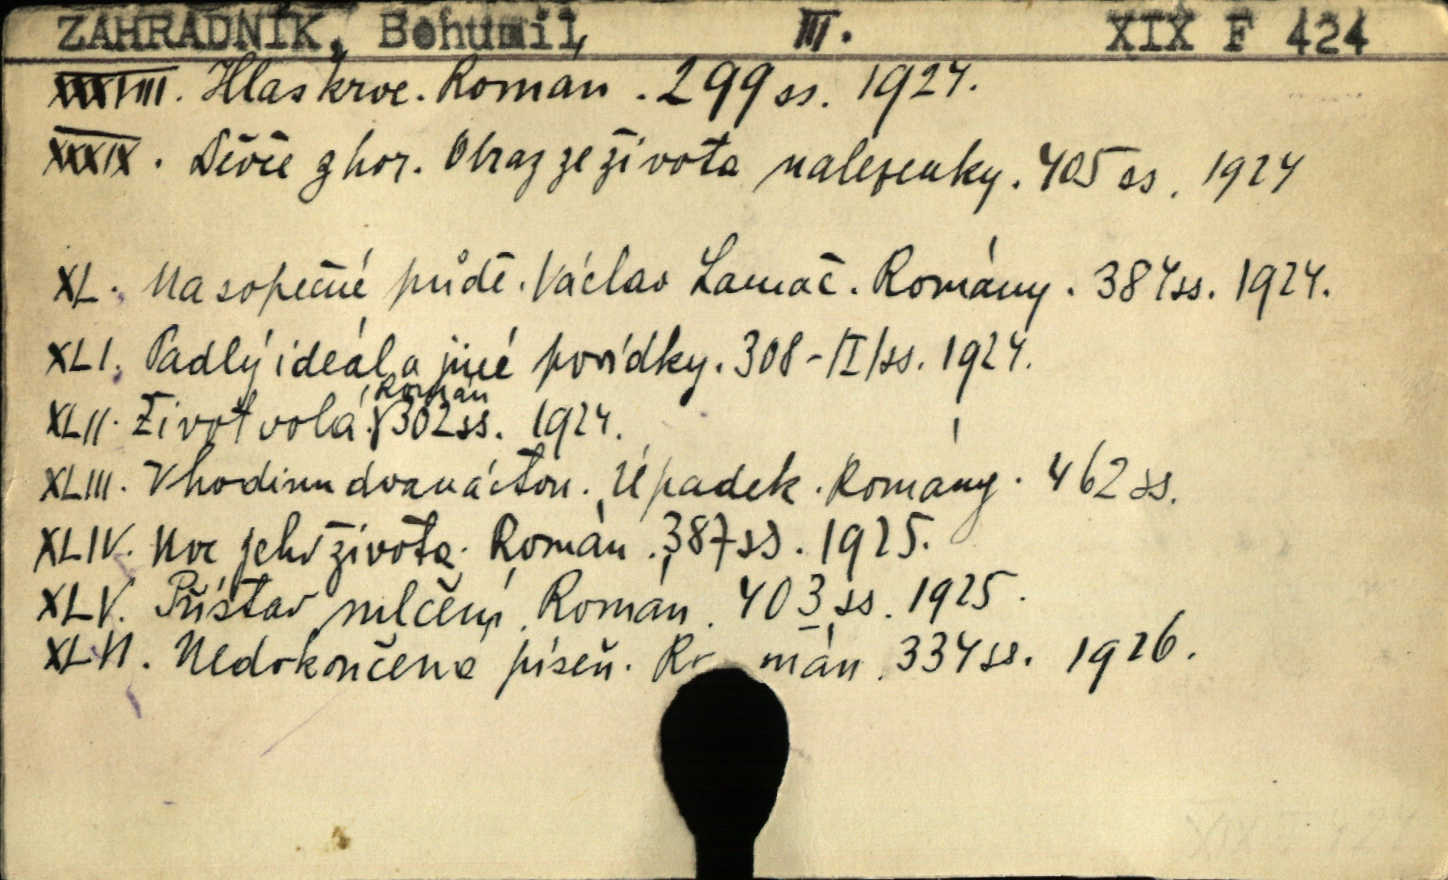 ZAHRADNÍK, Bohumil III. XIX F 424
XXXVIII. Hlas krve. Román. 299 ss. 1924.
XXXIX. Děvče z hor. Obraz ze života nalezenky. 405 ss. 1924
XL. Na sopečné půdě. Václav Lamač. Romány. 384 ss. 1924.
XLI. Padlý ideál a jiné povídky. 308-/I/ss. 1924.
Román
XLII. Život volá. 302 ss. 1924.
XLIII. V hodinu dvanáctou. Úpadek. Romány. 462 ss.
XLIV. Noc jeho života. Román. 387 ss. 1925.
XLV. Přístav mlčení. Román. 403 ss. 1925.
XLVI. Nedokončená píseň. Román. 334 ss. 1926.
XIX F 424